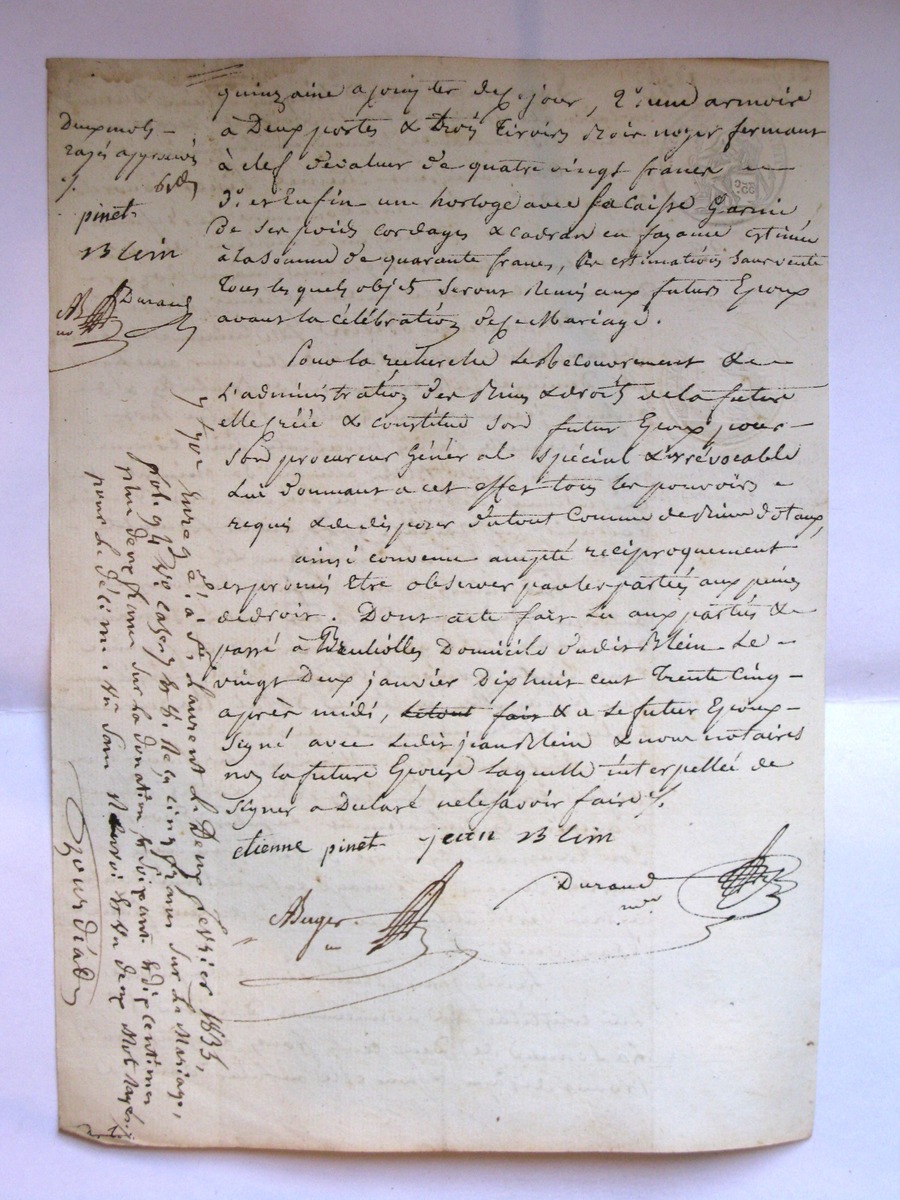 quinzaine a jour, 2° une armoire
à Deux portes & trois tiroirs Noyer fermant
à clef de valeur de quatre vingt francs
3° et Enfin une horloge avec sa caisse Garnie
De ses poids cordages & cadran en fayance estimée
à la Somme de quarante francs, les estimations Sans vente
Tous lesquels objets Seront Remis aux futurs Epoux
avant la célébration de Mariage.
Pour la recherche Le Recouvrement & de
L'administration des Biens & droits de la future
elle Crée & constitue Son futur Epoux pour
Son procureur Général Spécial & irrévocable
Lui donnant a cet effet tous les pouvoirs
requis & de disposer du tout Comme de Biens dotaux,
ainsi convenu accepté réciproquement
et promis Etre observer par les parties aux peines
de droit. Dont acte fait Lu aux parties &
passé à Domicile dudit Blein Le
vingt Deux janvier Dix huit cent trente Cinq
après midi, Le tout fait & a Le futur Epoux
Signé avec Ledit jean Blein & nous notaires
non la future Epouse Laquelle interpellée de
Signer a Déclaré ne le savoir faire
etienne pinet jean Blein
Durand
nre
Deux mots
rayés approuvés
pinet
Blein
Durand
Enreg à St Laurent Le Deux février 1835,
fol. Reçu cinq francs Sur Le Mariage,
plus francs Sur La donation, & Soixante & dix centimes
pour Le Décime. Deux Mots rayés